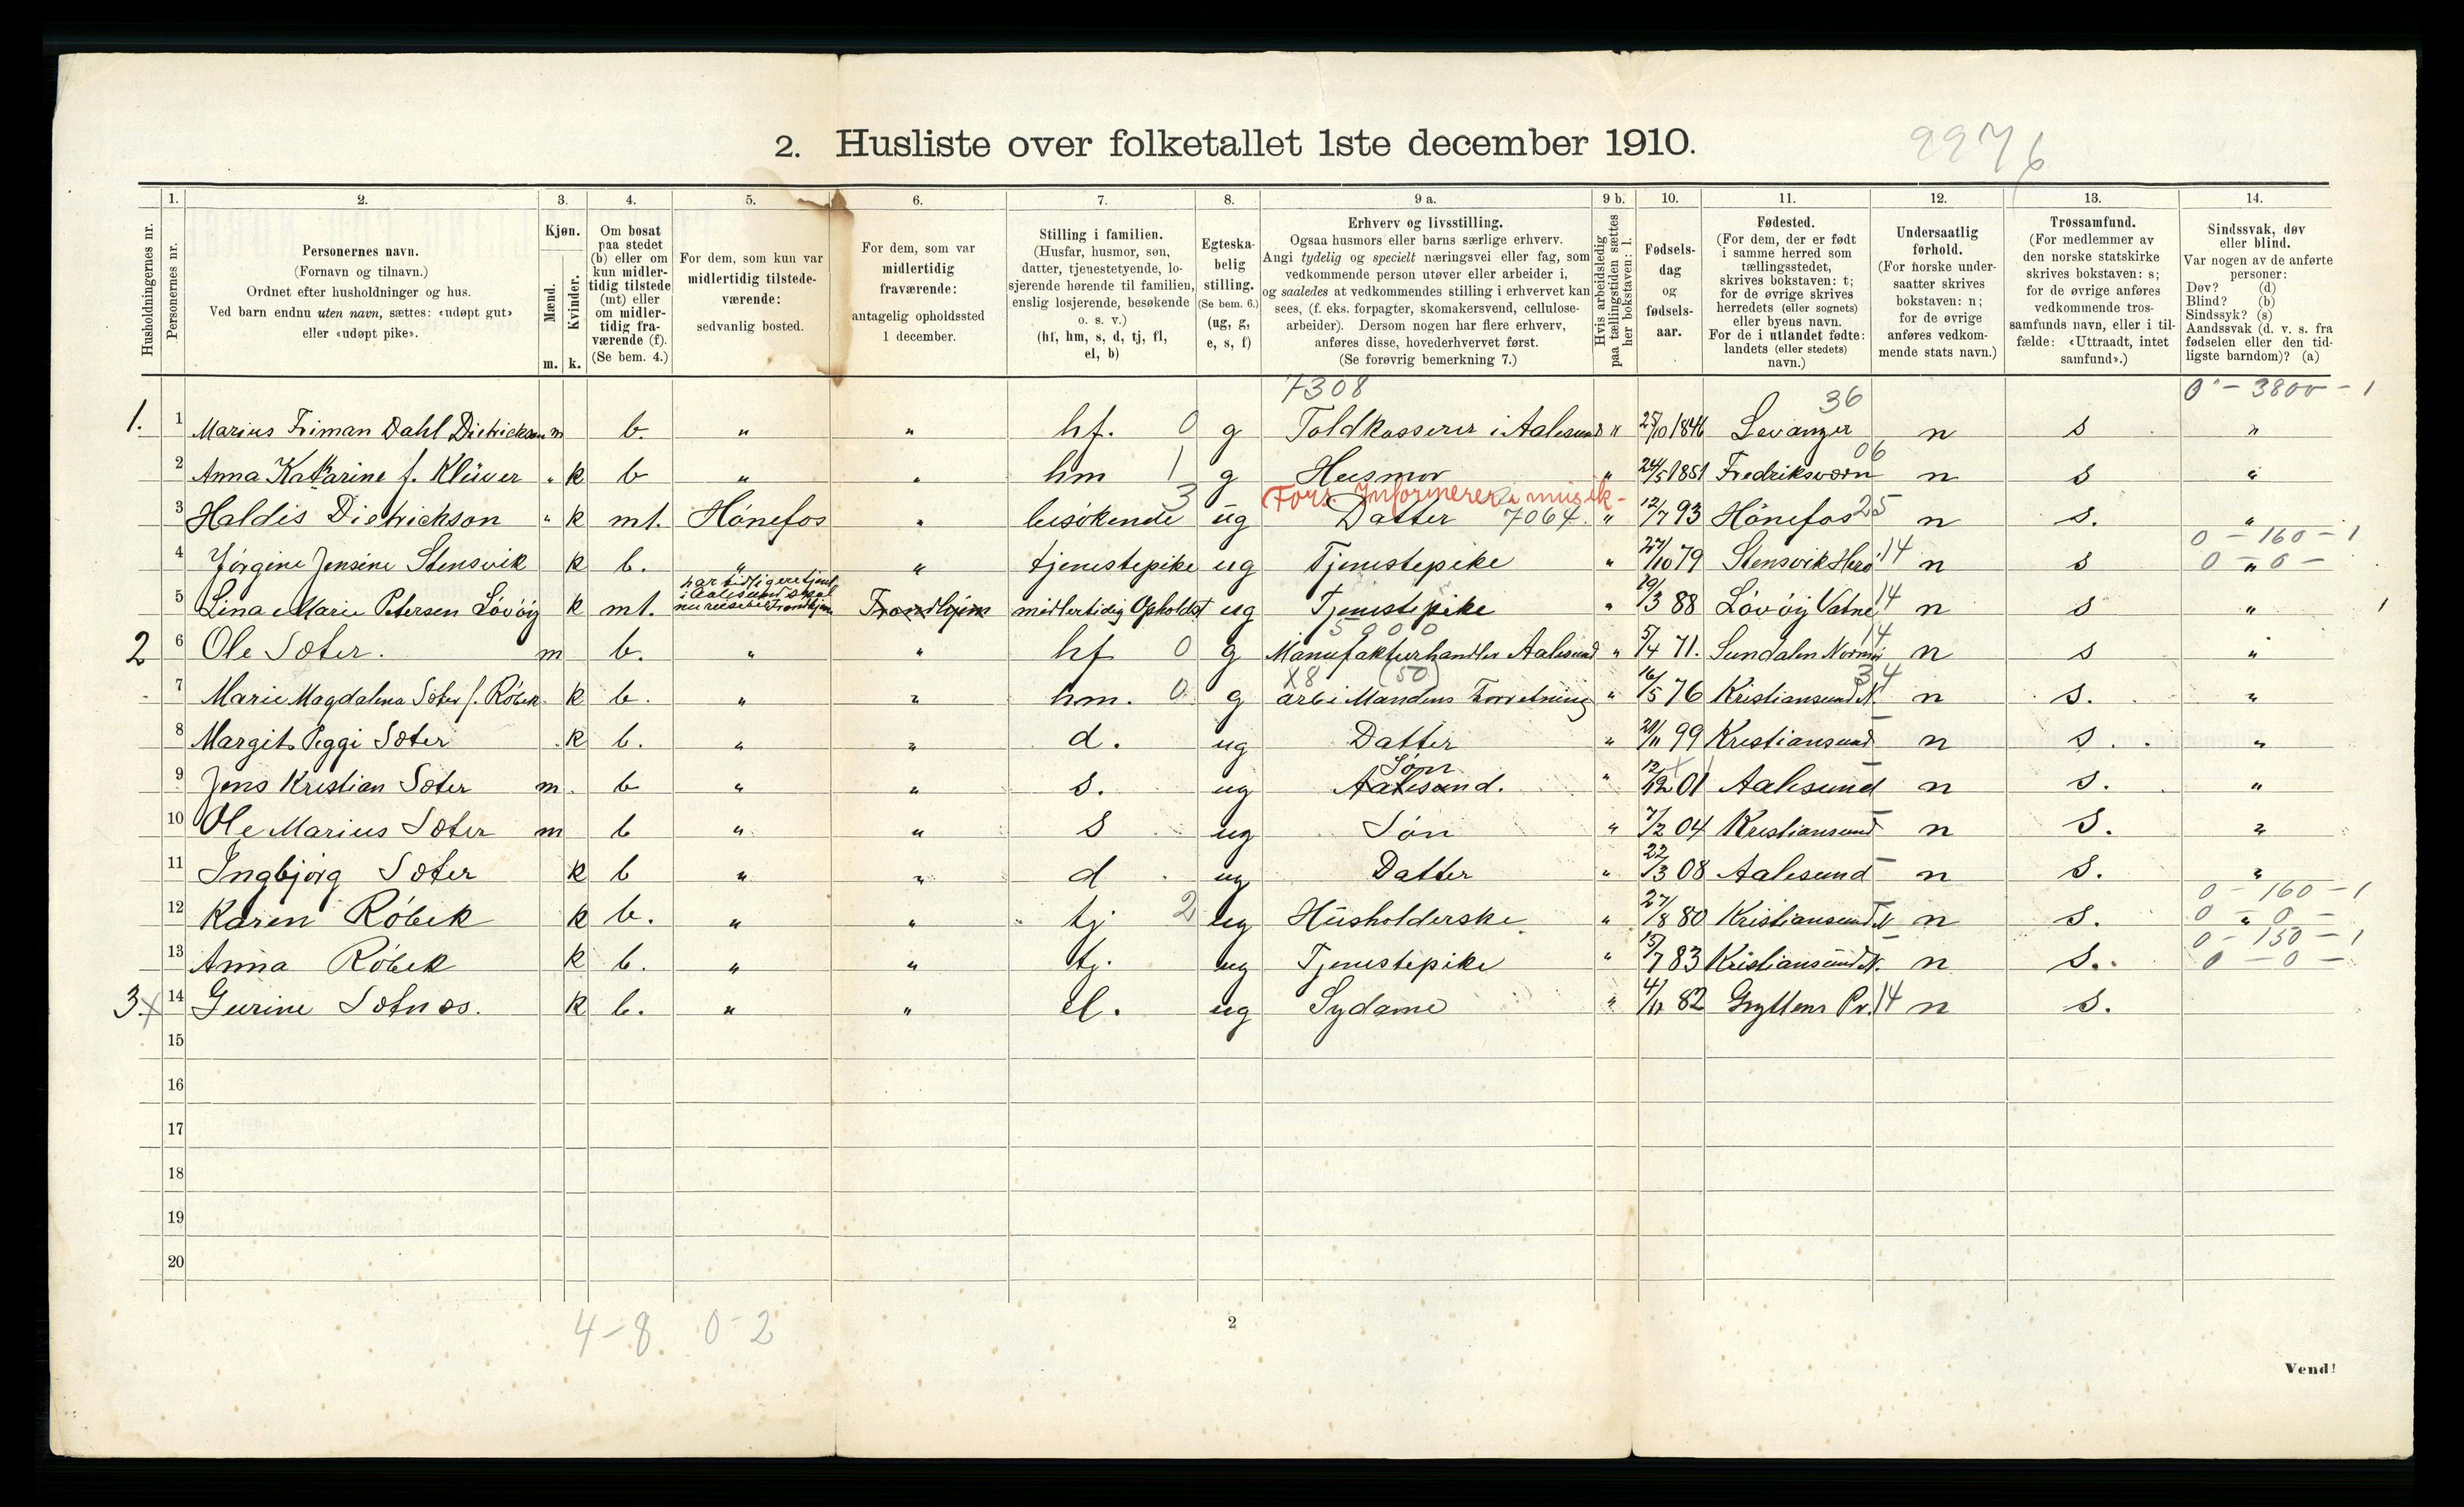 2. Husliste over folketallet 1ste december 1910.
9976
Husholdningernes nr.
1.
Personernes nr.
2.
Personernes navn.
(Fornavn og tilnavn.)
Ordnet efter husholdninger og hus.
Ved barn endnu uten navn, sættes: «udøpt gut»
eller «udøpt pike».
3.
Kjøn.
Mænd.
Kvinder.
m. k.
4.
Om bosat
paa stedet
(b) eller om
kun midler-
tidig tilstede
(mt) eller
om midler-
tidig fra-
værende (f).
(Se bem. 4.)
5.
For dem, som kun var
midlertidig tilstede-
værende:
sedvanlig bosted.
6.
For dem, som var
midlertidig
fraværende:
antagelig opholdssted
1 december.
7.
Stilling i familien.
(Husfar, husmor, søn,
datter, tjenestetyende, lo-
sjerende hørende til familien,
enslig losjerende, besøkende
o. s. v.)
(hf, hm, s, d, tj, fl,
el, b)
8.
Egteska-
belig
stilling.
(Se bem. 6.)
(ug, g,
e, s, f)
9 a.
Erhverv og livsstilling.
Ogsaa husmors eller barns særlige erhverv.
Angi tydelig og specielt næringsvei eller fag, som
vedkommende person utøver eller arbeider i,
og saaledes at vedkommendes stilling i erhvervet kan
sees, (f. eks. forpagter, skomakersvend, cellulose-
arbeider). Dersom nogen har flere erhverv,
anføres disse, hovederhvervet først.
(Se forøvrig bemerkning 7.)
9 b.
Hvis arbeidsledig
paa tællingstiden sættes
her bokstaven: l.
10.
Fødsels-
dag
og
fødsels-
aar.
11.
Fødested.
(For dem, der er født
i samme herred som
tællingsstedet,
skrives bokstaven: t;
for de øvrige skrives
herredets (eller sognets)
eller byens navn.
For de i utlandet fødte:
landets (eller stedets)
navn.)
12.
Undersaatlig
forhold.
(For norske under-
saatter skrives
bokstaven: n;
for de øvrige
anføres vedkom-
mende stats navn.)
13.
Trossamfund.
(For medlemmer av
den norske statskirke
skrives bokstaven: s;
for de øvrige anføres
vedkommende tros-
samfunds navn, eller i til-
fælde: «Uttraadt, intet
samfund».)
14.
Sindssvak, døv
eller blind.
Var nogen av de anførte
personer:
Døv? (d)
Blind? (b)
Sindssyk? (s)
Aandssvak (d. v. s. fra
fødselen eller den tid-
ligste barndom)? (a)
7308 36 0 - 3800 - 1
1. 1 Marius Friman Dahl Dietrickson m b. " " hf. 0 g Toldkasserer i Aalesund " 25/10 1846 Levanger n s "
06
2 Anna Katharine f. Klüwer " k b " " hm 1 g Husmor " 24/5 1851 Fredriksværn n s "
Fors. Informerer i musik-
3 Haldis Dietrickson " k mt. Hönefos " besökende 3 ug Datter 7064. " 12/7 93 Hönefos 25 n s. "
0 - 160 - 1
4 Jörgine Jensine Stensvik k b. " " tjenestepike ug Tjenestepike " 27/10 79 Stensvik Herö 14 n s 0 " 0 -
har tidligere tjent
i Aalesund skal
5 Lina Marie Petersen Lövöy k mt. nu reise til Trondhjem Trondhjem midlertidig Opholdst ug Tjenestepike " 19/3 88 Lövöy Vatne 14 n s " 1
5900 14
2 6 Ole Sæter. m b. " " hf 0 g Manufakturhandler Aalesund " 5/4 71. Sundalen Normör n s "
X8 (50) 34
7 Marie Magdalena Sæter f. Röbek k b. " " hm. 0 g arb i Mandens Forretning " 16/5 76 Kristiansund N. n s. "
8 Margit Peggi Sæter k b. " " d. ug Datter " 20/11 99 Kristiansund n s. "
Sön
9 Jens Kristian Sæter m. b " " s. ug Aalesund. " 12/12 01 Aalesund n s. "
10 Ole Marius Sæter m b " " s ug Sön " 7/2 04 Kristiansund n s. "
11 Ingbjörg Sæter k b " " d ug Datter " 22/3 08 Aalesund n s. "
0 - 160 - 1
12 Karen Röbek k b. " " tj 2 ug Husholderske " 27/8 80 Kristiansund N n s. 0 " 0 -
0 - 150 - 1
13 Anna Röbek k b. " " tj. ug Tjenestepike " 15/7 83 Kristiansund N. n s. 0 - 0 -
3. x 14 Gurine Sætnes. k b. " " el. ug Sydame " 4/11 82 Gryttens Pr. 14 n s.
15
16
17
18
19
20
4-8 0-2
2
Vend!